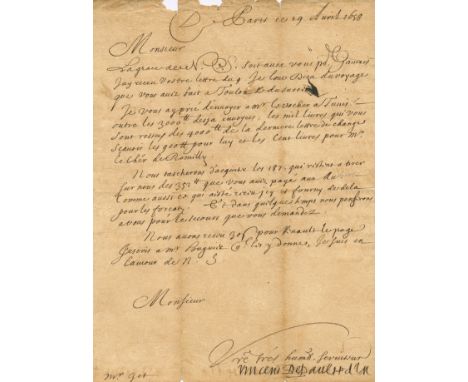 De Paris ce 19 Avril 1658
Monsieur
La grace de N. S. soit avec vous p.^r Jamais
Jay receu vostre lettre du 9. Je loue Dieu du voyage
que vous avez fait a Toulon &
Je vous ay prié denvoyer a M^r le vacher a Tunis
outre les 300^tt desja envoyez, les mil livres qui vous
sont restez des 4000^tt de la derniere lettre de change
scavoir les 900^tt pour luy et les Cent livres pour M^r
le Cher de Romilly
Nous tascherons dacquiter les 187. qui restent a tirer
sur nous des 337^tt que vous avez payé aux
Comme aussi ce qui a esté receu icy et fourny de dela
pour les forcats. dans quelques temps nous penserons
a vous pour le secours que vous demandez
Nous avons receu 30^s pour Renault le page
Jescris a M^r Huguier & Je suis en
lamour de N. S
Monsieur
V^re tres humb. serviteur
Vincent Depaul
M^r Get